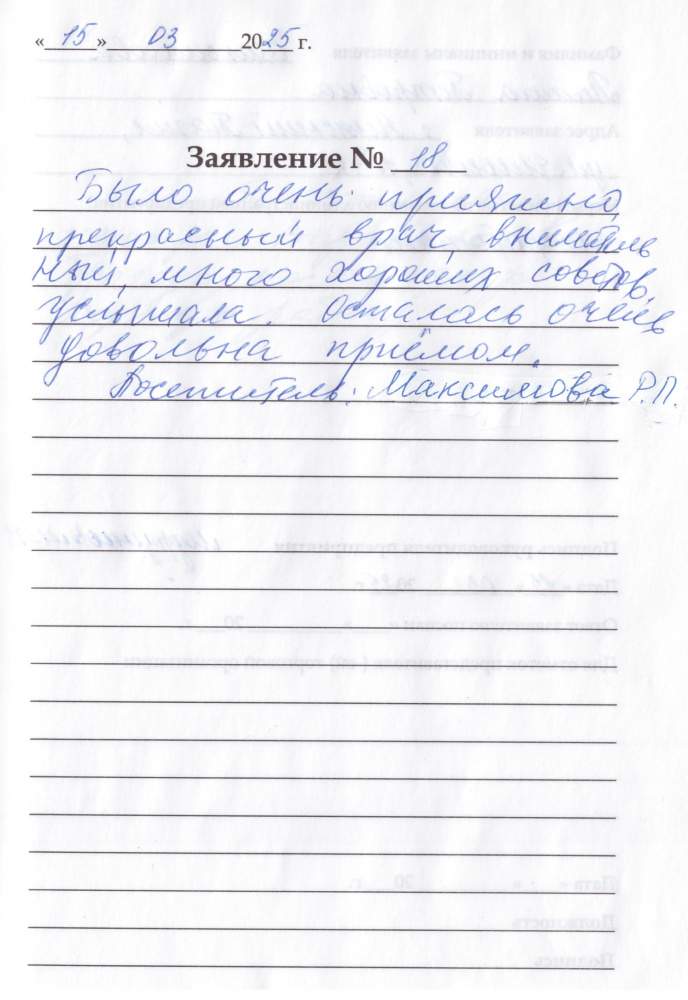 «15» 03 2025 г.
Заявление № 18
Было очень приятно,
прекрасный врач, вниматель
ный, много хороших советов
услышала. Осталась очень
довольна приёмом.
Посетитель: Максимова Р.П.